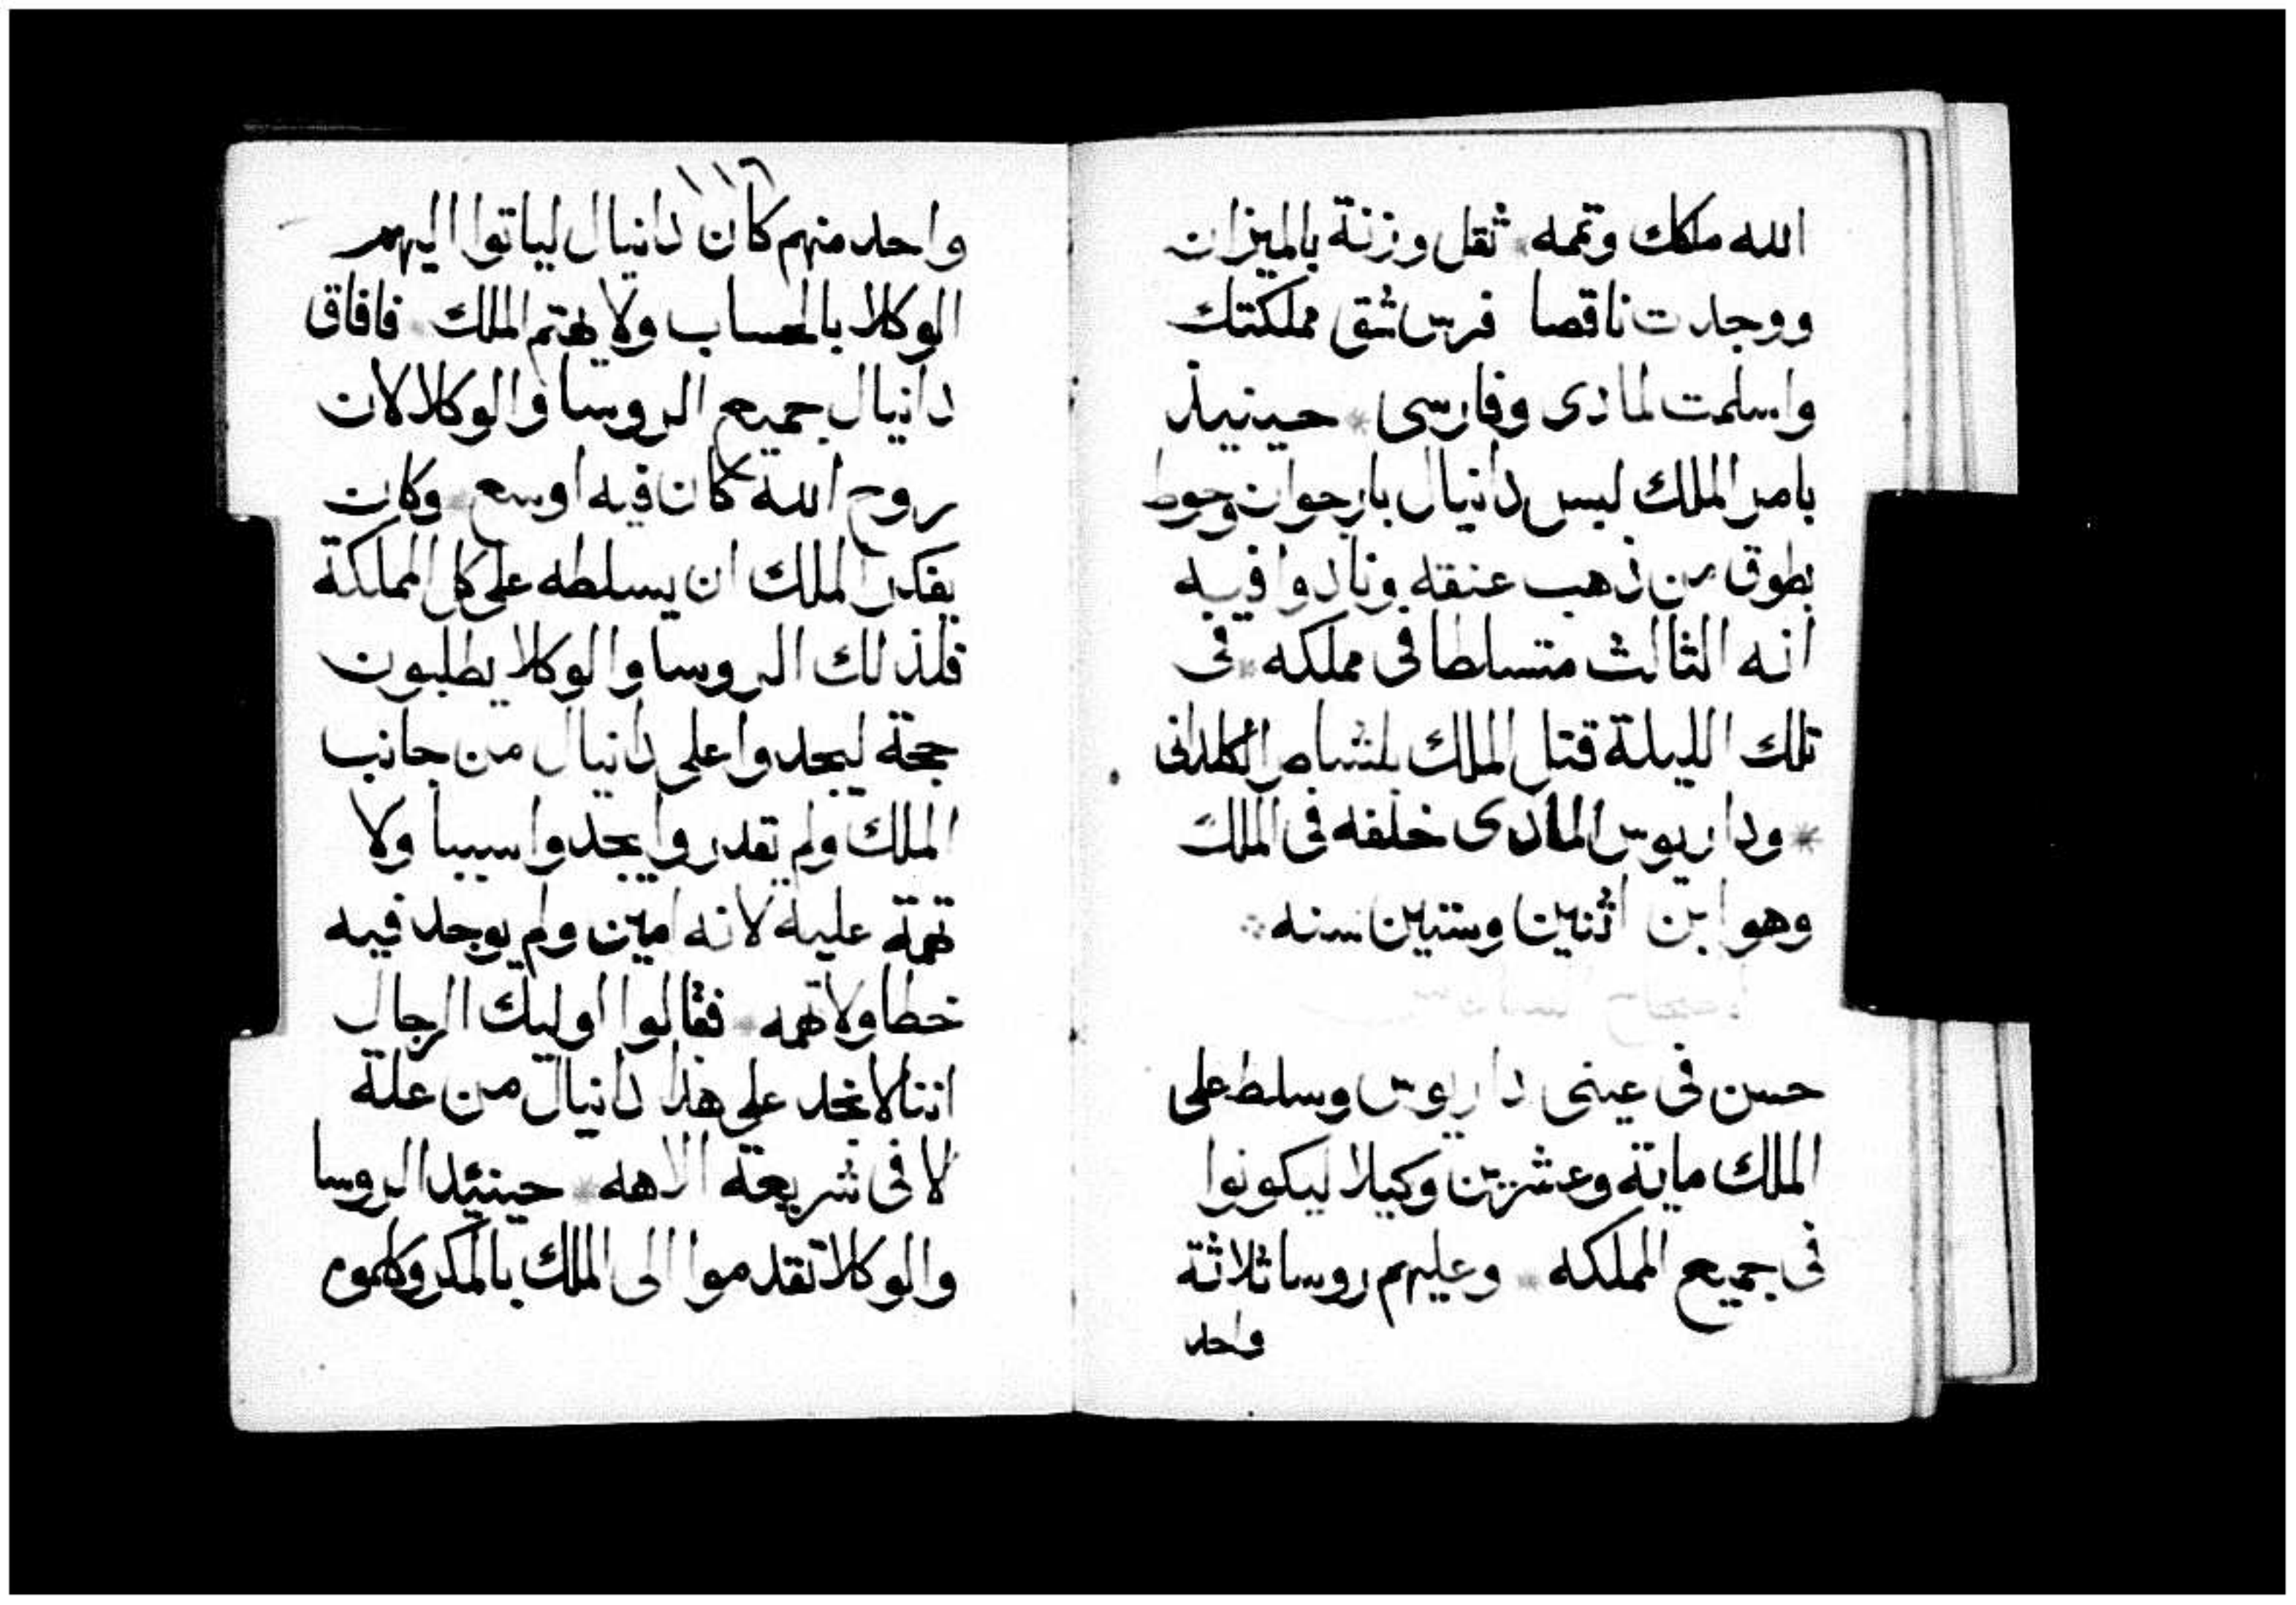 الله ملكك وتممه * ثقل وزنة بالميزان
ووجدت ناقصا فرس شقى مملكتك
واسلمت لمادى وفارسى * حينيذ
بامر الملك لبس دانيال بارجوان وحوط
بطوق من ذهب عنقه ونادوا فيه
انه الثالث متسلطا فى مملكه * فى
تلك الليلة قتل الملك بلشاصر الكلدانى
* وداريوس المادى خلفه فى الملك
وهو ابن اثنين وستين سنه
حسن فى عينى داريوس وسلط على
الملك ماية وعشرين وكيلا ليكونوا
فى جميع المملكه * وعليهم روسا ثلاثة
واحد
١١٢
واحد منهم كان دانيال لياتوا اليهم
الوكلا بالحساب ولا يهتم الملك * فافاق
دانيال جميع الروسا والوكلا لان
روح الله كان فيه اوسع * وكان
يفكر الملك ان يسلطه على كل المملكة
فلذلك الروسا والوكلا يطلبون
حجة ليجدوا على دانيال من جانب
الملك ولم يقدروا يجدوا سببا ولا
تهمة عليه لانه امين ولم يوجد فيه
خطا ولا تهمه * فقالوا اوليك الرجال
اننا لا نجد على هذا دانيال من علة
لا فى شريعة الاهه * حينئد الروسا
والوكلا تقدموا الى الملك بالمكر وكلموه